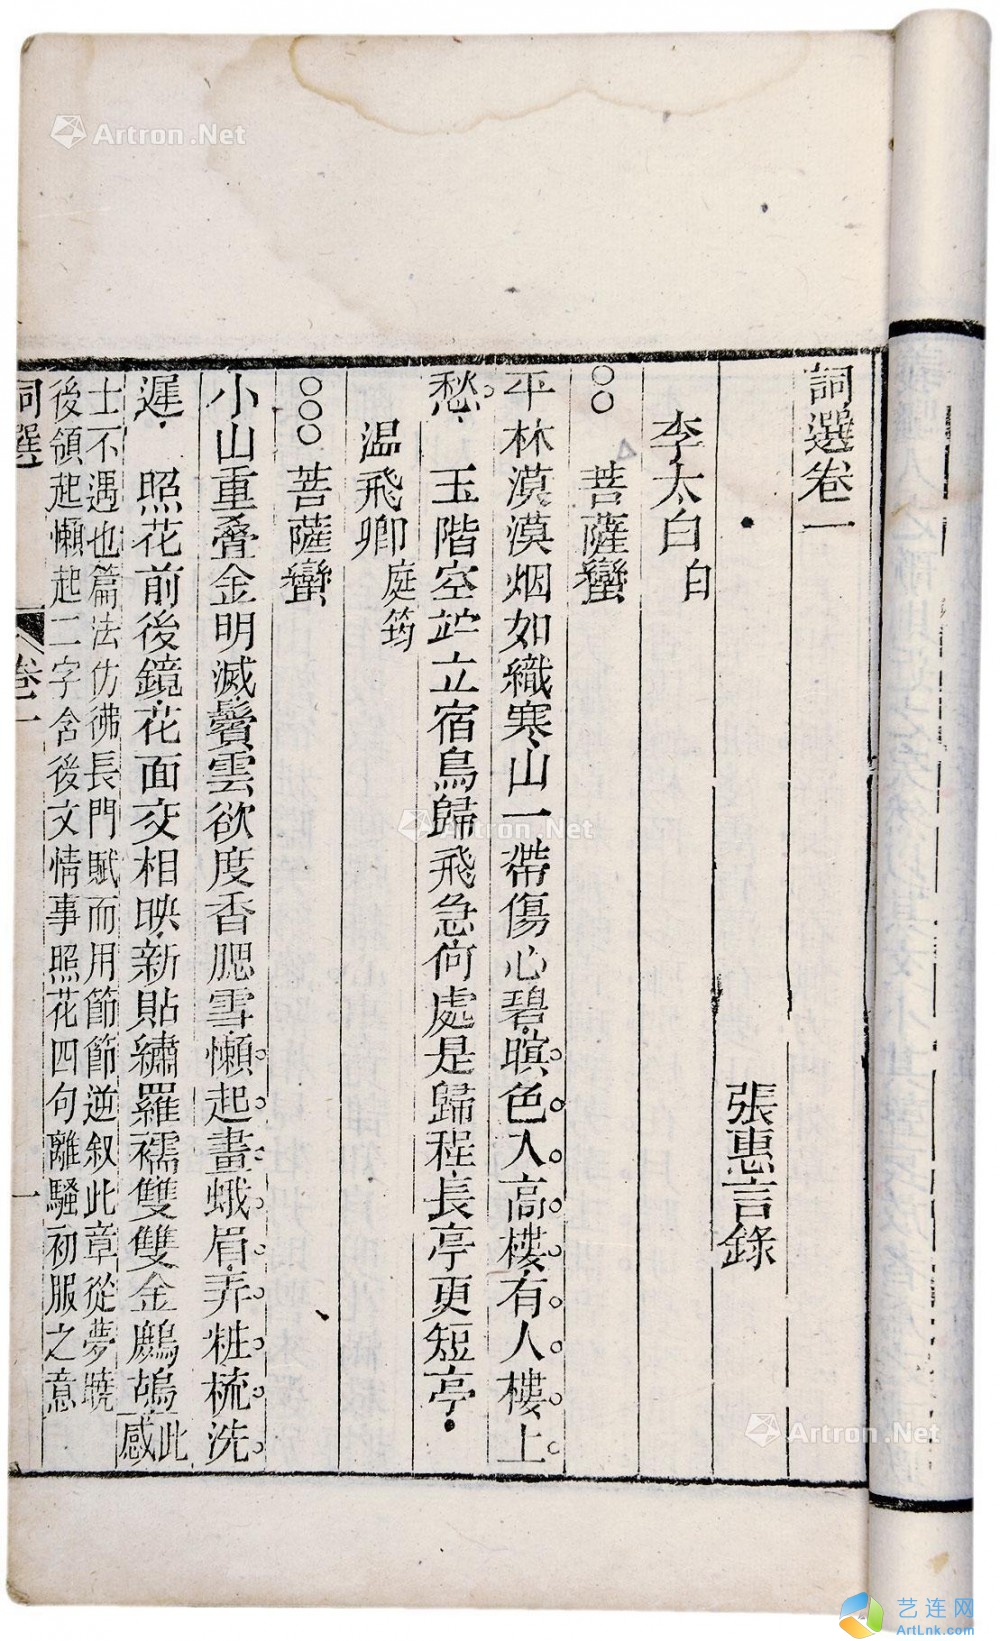 詞選卷一
張惠言錄
李太白白
菩薩蠻
平林漠漠烟如織寒山一帶傷心碧暝色入高樓有人樓上
愁 玉階空竚立宿鳥歸飛急何處是歸程長亭更短亭
温飛卿庭筠
菩薩蠻
小山重疊金明滅鬢雲欲度香腮雪懶起畫蛾眉弄粧梳洗
遲 照花前後鏡花面交相映新貼繡羅襦雙雙金鷓鴣此感
士不遇也篇法仿彿長門賦而用節節逆叙此章從夢曉
後領起懶起二字含後文情事照花四句離騷初服之意
詞選
卷一
一
Artron.Net
Artron.Net
Artron.Net
艺连网
ArtLnk.com